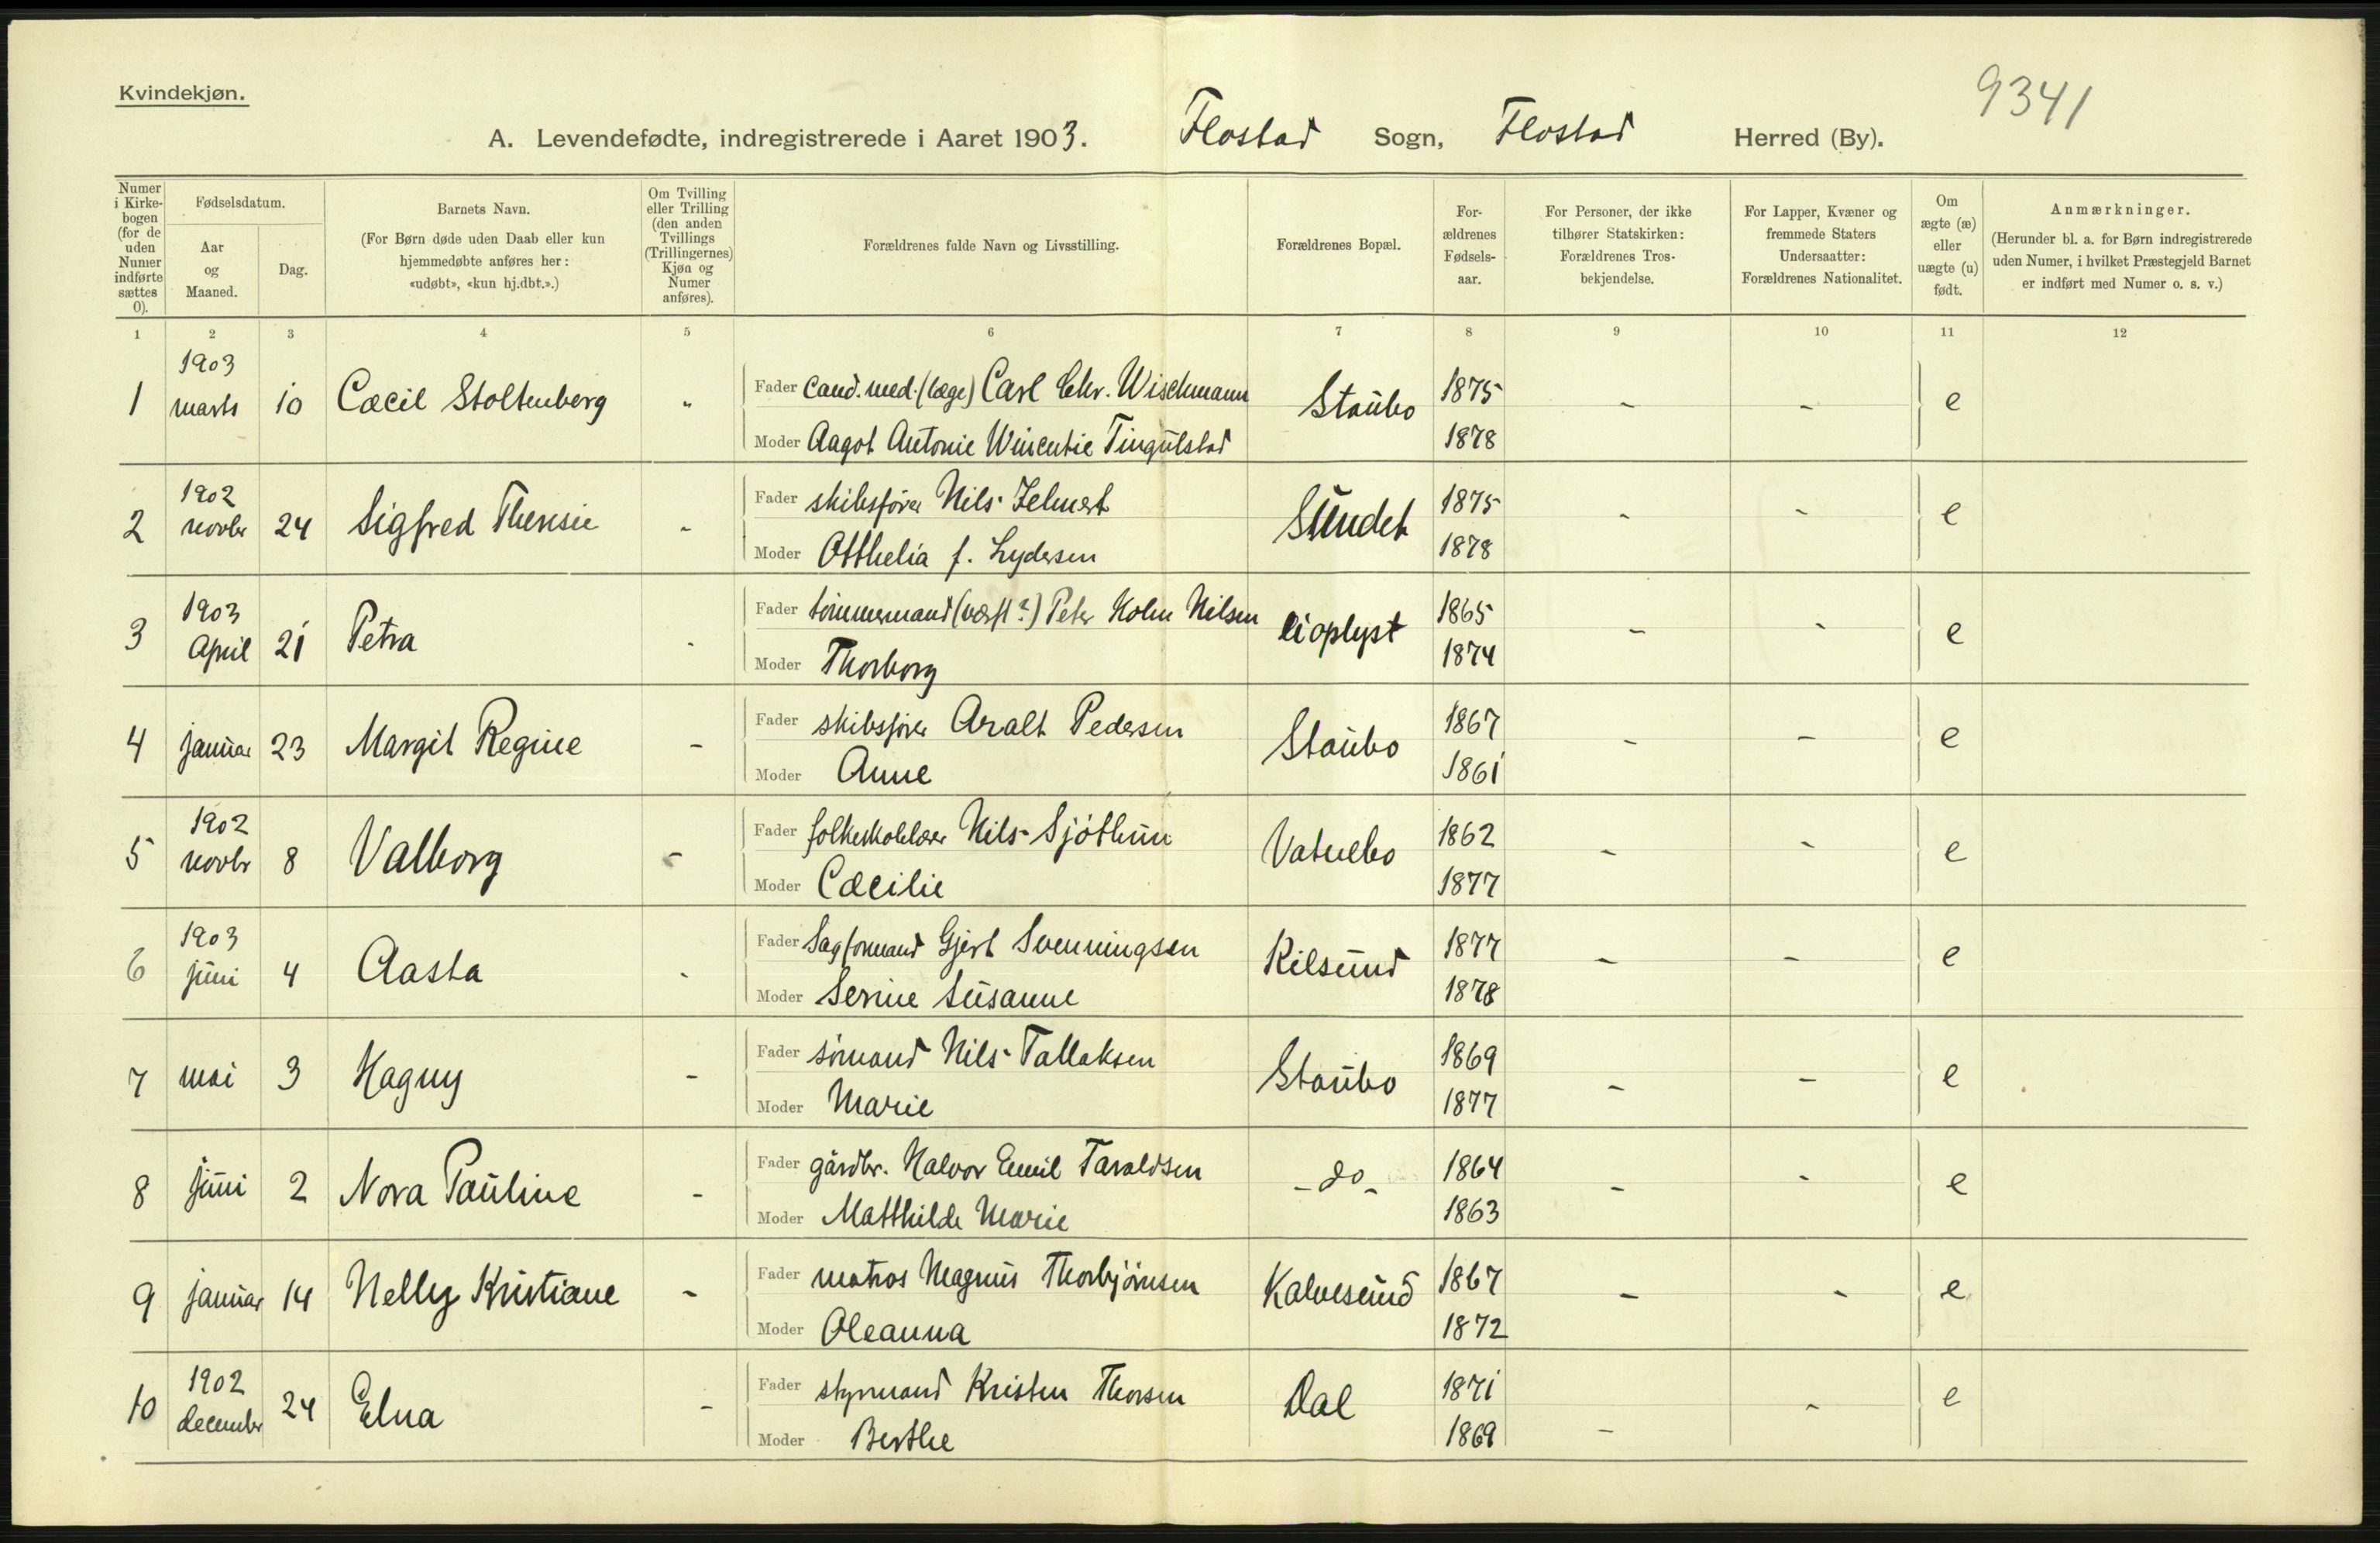 Kvindekjøn.
9341
A. Levendefødte, indregistrerede i Aaret 1903. Flostad Sogn, Flostad Herred (By).
Numer i Kirkebogen (for de uden Numer indførte sættes 0).
Fødselsdatum.
Aar og Maaned.
Dag.
Barnets Navn.
(For Børn døde uden Daab eller kun hjemmedøbte anføres her: «udøbt», «kun hj.dbt.».)
Om Tvilling eller Trilling (den anden Tvillings (Trillingernes) Kjøn og Numer anføres).
Forældrenes fulde Navn og Livsstilling.
Forældrenes Bopæl.
Forældrenes Fødselsaar.
For Personer, der ikke tilhører Statskirken: Forældrenes Trosbekjendelse.
For Lapper, Kvæner og fremmede Staters Undersaatter: Forældrenes Nationalitet.
Om ægte (æ) eller uægte (u) født.
Anmærkninger.
(Herunder bl. a. for Børn indregistrerede uden Numer, i hvilket Præstegjeld Barnet er indført med Numer o. s. v.)
1 2 3 4 5 6 7 8 9 10 11 12
1903
1 marts 10 Cæcil Stoltenberg " Fader Cand. med. (læge) Carl Chr. Wischmann Staubo 1875 - - e
Moder Aagot Antonie Wincentie Tingulstad 1878
1902
2 novbr 24 Sigfred Theresie - Fader skibsfører Nils Jelmert Sundet 1875 - - e
Moder Otthelia f. Lydersen 1878
1903
3 April 21 Petra - Fader tømmermand (værft?) Peter Holm Nilsen uoplyst 1865 - - e
Moder Thorborg 1874
4 januar 23 Margit Regine - Fader skibsfører Aralt Pedersen Staubo 1867 - - e
Moder Anne 1861
1902
5 novbr 8 Valborg - Fader folkeskolelærer Nils Sjøthun Vatnebo 1862 - - e
Moder Cæcilie 1877
1903
6 juni 4 Aasta - Fader Sagformand Gjert Svenningsen Kilsund 1877 - - e
Moder Serine Susanne 1878
7 mai 3 Hagny - Fader sømand Nils Tallaksen Staubo 1869 - - e
Moder Marie 1877
8 juni 2 Nora Pauline - Fader gårdbr. Halvor Emil Taraldsen -do- 1864 - - e
Moder Matthilde Marie 1863
9 januar 14 Nelly Kristiane - Fader matros Magnus Thorbjørnsen Kalvesund 1867 - - e
Moder Oleanna 1872
1902
10 december 24 Elna - Fader styrmand Kristen Thorsen Dal 1871 - - e
Moder Berthe 1869